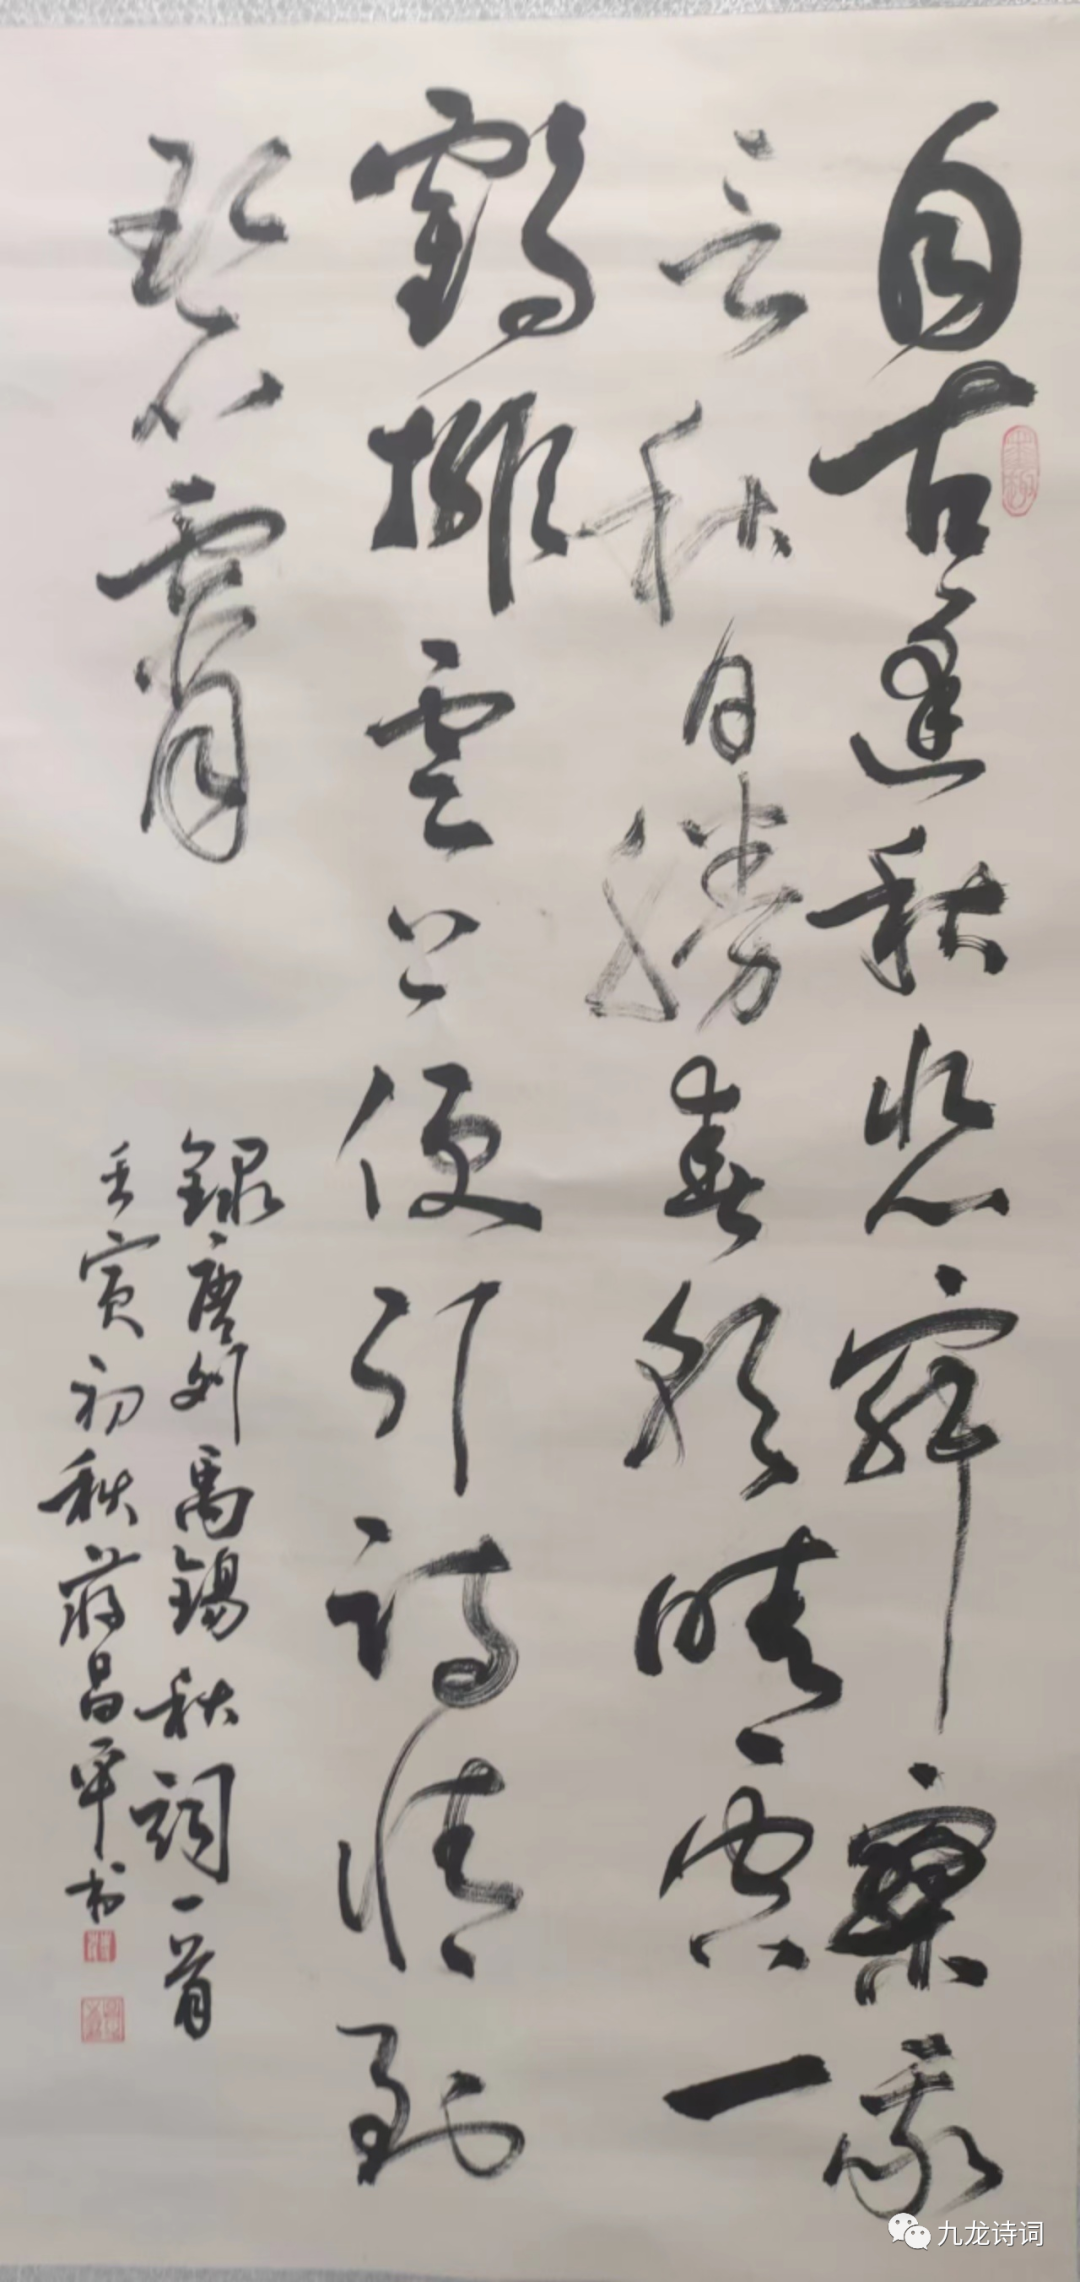 自古逢秋悲寂寥我
言秋日勝春朝晴空一
鶴排雲上便引詩情到
碧霄
錄唐刘禹錫秋詞一首
壬寅初秋蔣昌平书
九龙诗词